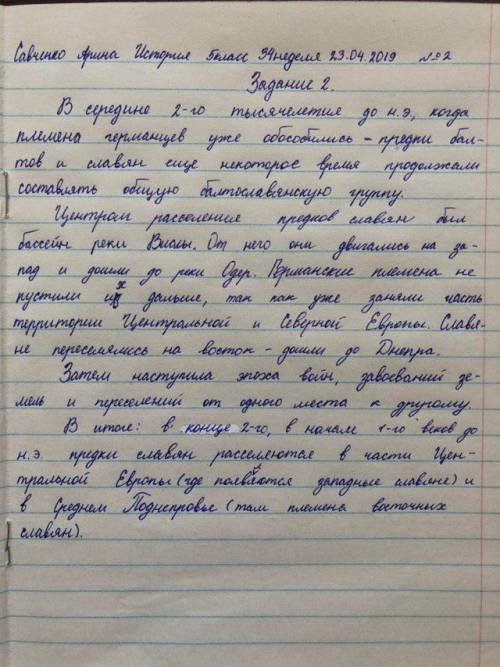 Савченко Арина История 5класс 34неделя 23.04.2019 №2
Задание 2.
В середине 2-го тысячелетия до н.э, когда
племена германцев уже обособились - предки бал-
тов и славян еще некоторое время продолжали
составлять общую балтославянскую группу.
Центром расселения предков славян был
бассейн реки Вислы. От него они двигались на за-
пад и дошли до реки Одер. Германские племена не
пустили их дальше, так как уже заняли часть
территории Центральной и Северной Европы. Славя-
не переселялись на восток - дошли до Днепра.
Затем наступила эпоха войн, завоеваний зе-
мель и переселений от одного места к другому.
В итоге: в конце 2-го, в начале 1-го веков до
н.э. предки славян расселяются в части Цен-
тральной Европы (где появяются западные славяне) и
в Среднем Поднепровье (там племена восточных
славян).